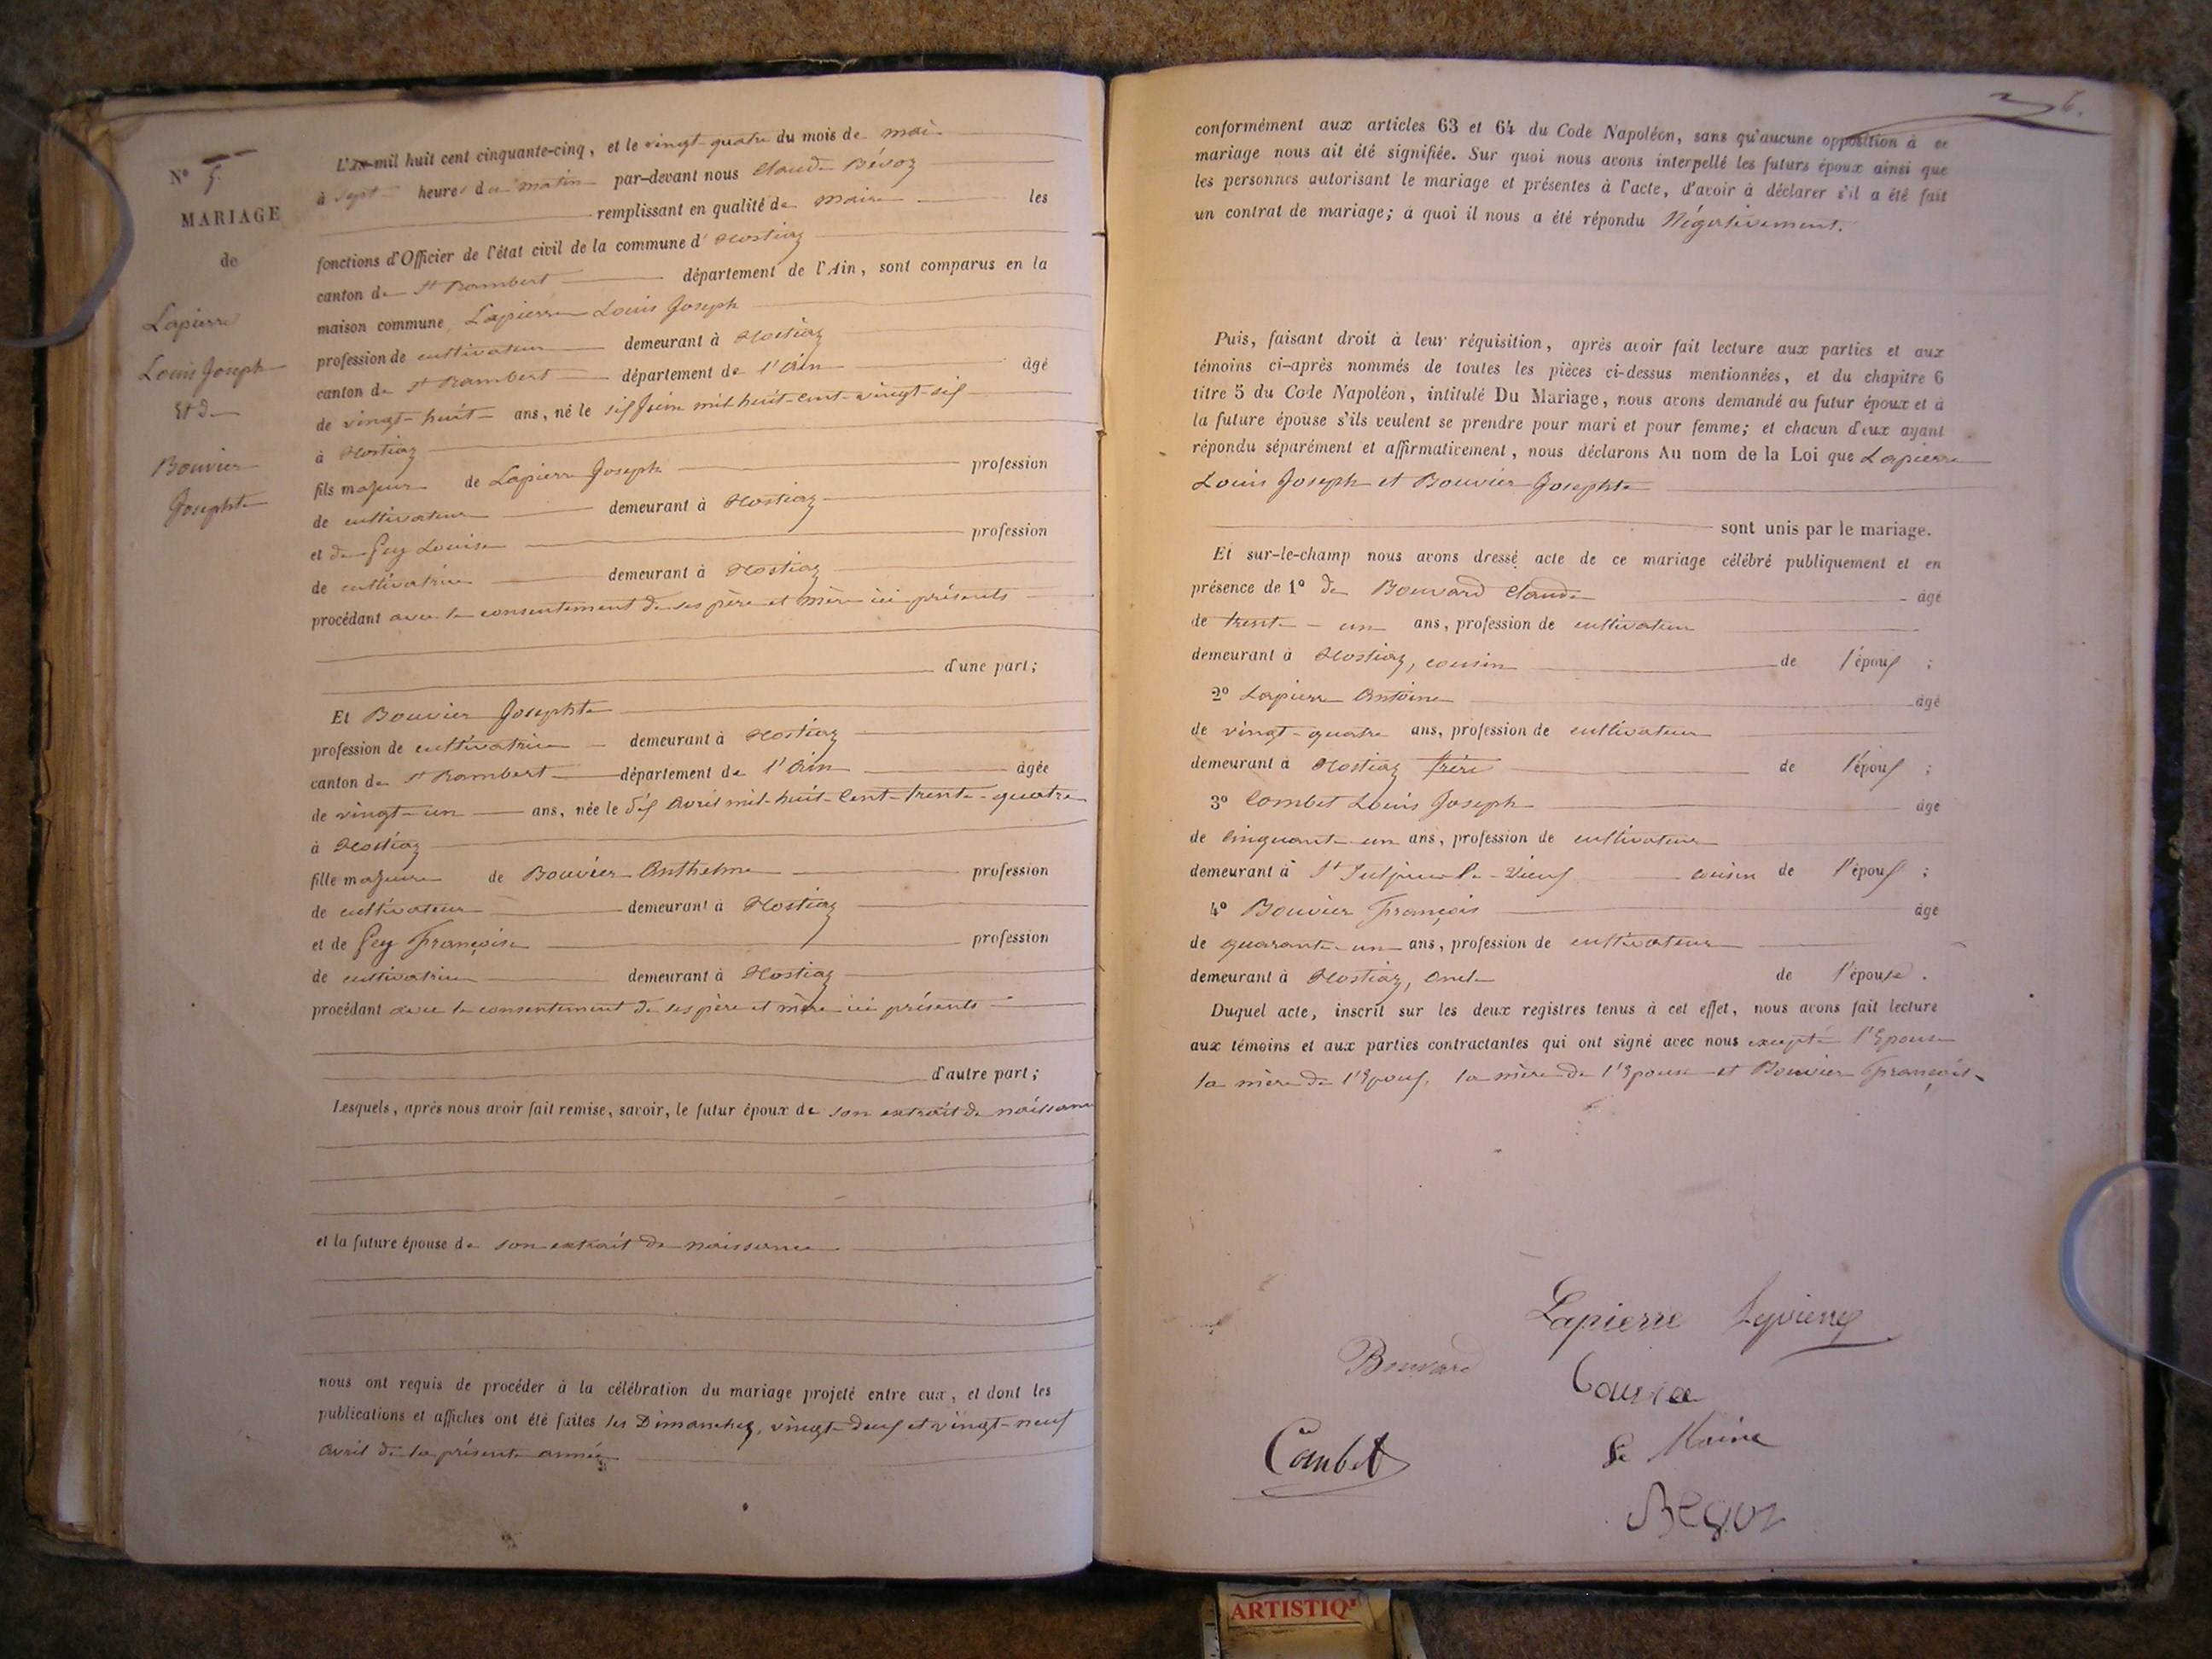 N° 5.
MARIAGE
de
Lapierre
Louis Joseph
Et de
Bouvier
Josephte
L'An mil huit cent cinquante-cinq, et le vingt-quatre du mois de mai
à sept heures du matin par-devant nous Claude Bévoz
remplissant en qualité de Maire les
fonctions d'Officier de l'état civil de la commune d'Hostiaz
canton de St Rambert département de l'Ain, sont comparus en la
maison commune Lapierre Louis Joseph
profession de cultivateur demeurant à Hostiaz
canton de St Rambert département de l'Ain âgé
de vingt-huit ans, né le six Juin mil huit-cent-vingt-six
à Hostiaz
fils majeur de Lapierre Joseph profession
de cultivateur demeurant à Hostiaz
et de Gey Louise profession
de cultivatrice demeurant à Hostiaz
procédant avec le consentement de ses père et mère ici présents
d'une part;
Et Bouvier Josephte
profession de cultivatrice demeurant à Hostiaz
canton de St Rambert département de l'Ain âgée
de vingt-un ans, née le dix Avril mil-huit-Cent-trente-quatre
à Hostiaz
fille majeure de Bouvier Anthelme profession
de cultivateur demeurant à Hostiaz
et de Gey Françoise profession
de cultivatrice demeurant à Hostiaz
procédant avec le consentement de ses père et mère ici présents
d'autre part;
Lesquels, après nous avoir fait remise, savoir, le futur époux de son extrait de naissance
et la future épouse de son extrait de naissance
nous ont requis de procéder à la célébration du mariage projeté entre eux, et dont les
publications et affiches ont été faites les Dimanches, vingt-deux et vingt-neuf
Avril de la présente année
6.
conformément aux articles 63 et 64 du Code Napoléon, sans qu'aucune opposition à ce
mariage nous ait été signifiée. Sur quoi nous avons interpellé les futurs époux ainsi que
les personnes autorisant le mariage et présentes à l'acte, d'avoir à déclarer s'il a été fait
un contrat de mariage; à quoi il nous a été répondu Négativement.
Puis, faisant droit à leur réquisition, après avoir fait lecture aux parties et aux
témoins ci-après nommés de toutes les pièces ci-dessus mentionnées, et du chapitre 6
titre 5 du Code Napoléon, intitulé Du Mariage, nous avons demandé au futur époux et à
la future épouse s'ils veulent se prendre pour mari et pour femme; et chacun d'eux ayant
répondu séparément et affirmativement, nous déclarons Au nom de la Loi que Lapierre
Louis Joseph et Bouvier Josephte
sont unis par le mariage.
Et sur-le-champ nous avons dressé acte de ce mariage célébré publiquement et en
présence de 1° de Bouvard Claude âgé
de trente-un ans, profession de cultivateur
demeurant à Hostiaz, cousin de l'époux ;
2° Lapierre Antoine âgé
de vingt-quatre ans, profession de cultivateur
demeurant à Hostiaz frère de l'époux ;
3° Combet Louis Joseph âgé
de Cinquante-un ans, profession de cultivateur
demeurant à St Sulpice le-Vieux cousin de l'époux ;
4° Bouvier François âgé
de quarante-un ans, profession de cultivateur
demeurant à Hostiaz, oncle de l'épouse.
Duquel acte, inscrit sur les deux registres tenus à cet effet, nous avons fait lecture
aux témoins et aux parties contractantes qui ont signé avec nous excepté l'Epouse
la mère de l'Epoux, la mère de l'Epouse et Bouvier François
Lapierre
Bouvard
Combet
Le Maire
Bevoz
ARTISTIQ